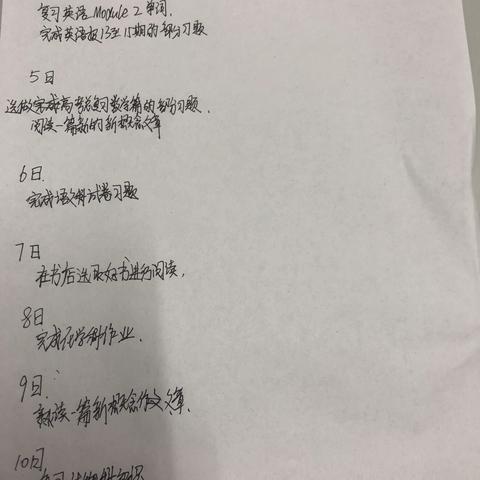 复习英语Module 2 单词.
完成英语报13至15期的部分习题
5日
选做完成高考总复习数学篇的部分习题.
阅读一篇新的新概念文章
6日.
完成语文学科试卷习题
7日
在书店选取好书进行阅读.
8日
完成化学科作业.
9日.
熟读一篇新概念作文文章.
10日